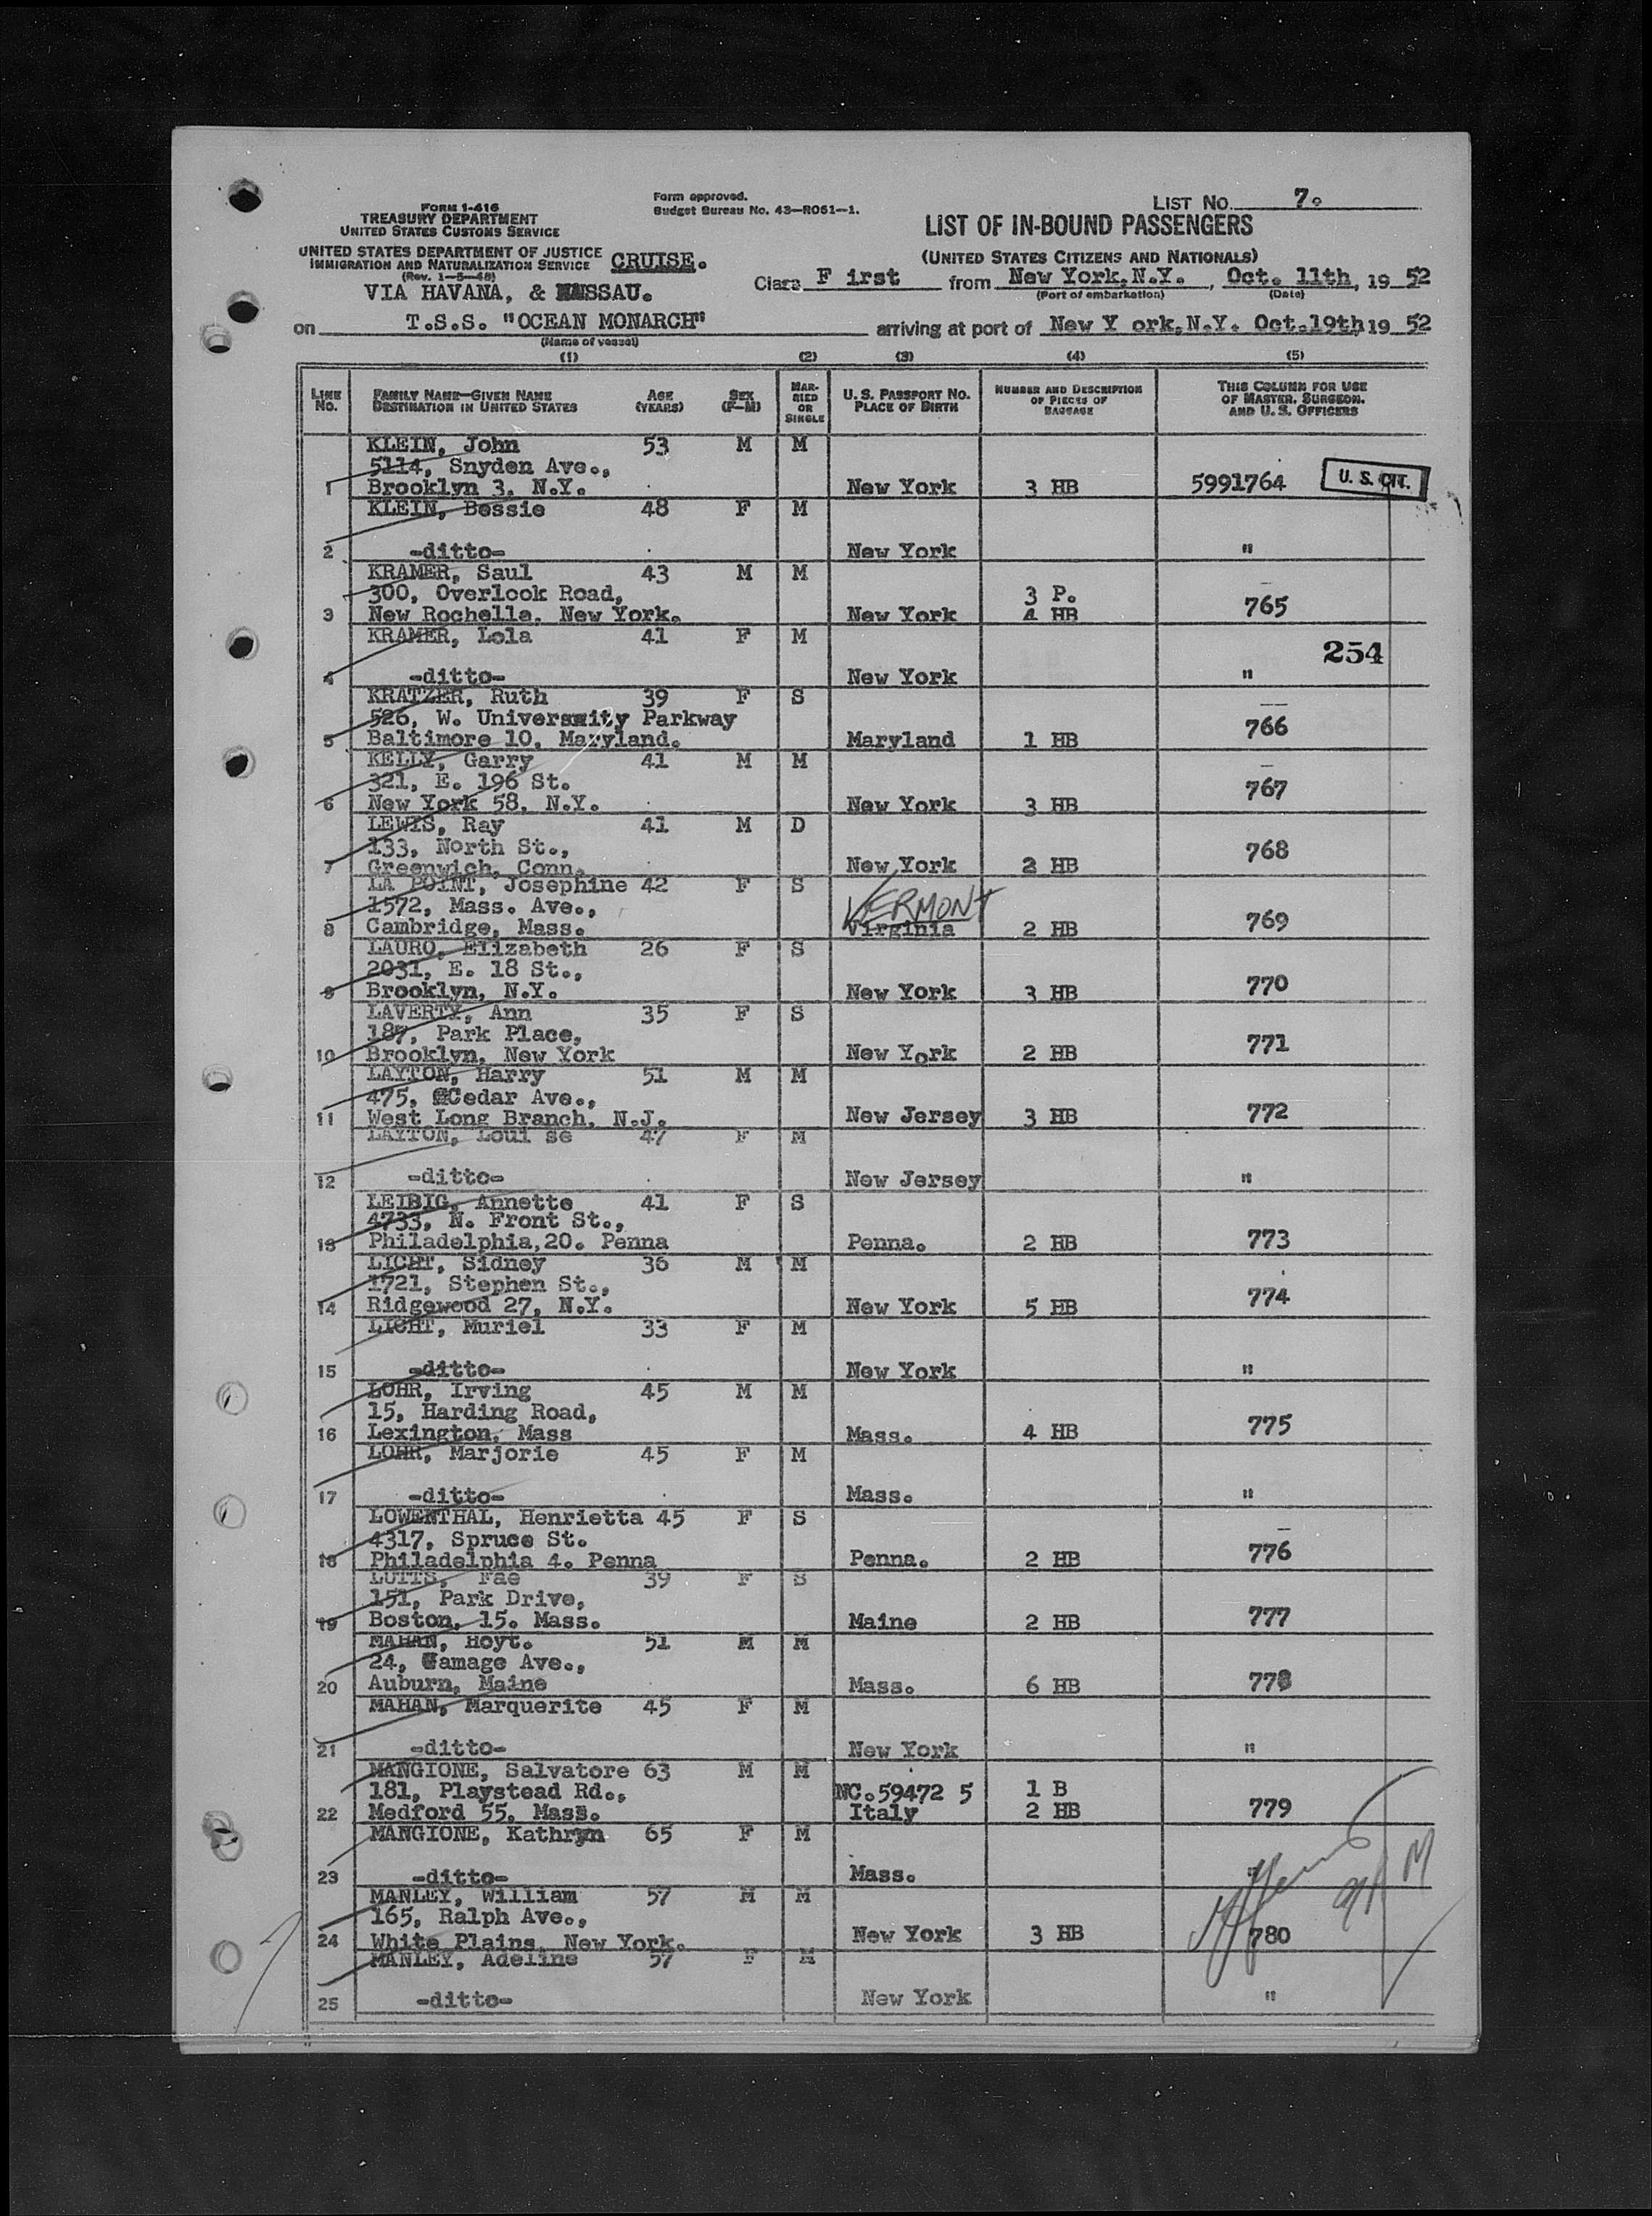 FORM I-416
TREASURY DEPARTMENT
UNITED STATES CUSTOMS SERVICE
UNITED STATES DEPARTMENT OF JUSTICE
IMMIGRATION AND NATURALIZATION SERVICE
(Rev. 1-5-48)
CRUISE.
VIA HAVANA, & NASSAU.
Form approved.
Budget Bureau No. 43-R051-1.
LIST No. 7.
LIST OF IN-BOUND PASSENGERS
(UNITED STATES CITIZENS AND NATIONALS)
Class F irst from New York,N.Y. , Oct. 11th, 19 52
(Port of embarkation) (Date)
on T.S.S. "OCEAN MONARCH" arriving at port of New Y ork,N.Y. Oct.19th 19 52
(Name of vessel)
(1) (2) (3) (4) (5)
LINE No. FAMILY NAME-GIVEN NAME DESTINATION IN UNITED STATES AGE (YEARS) SEX (F-M) MARRIED OR SINGLE U. S. PASSPORT NO. PLACE OF BIRTH NUMBER AND DESCRIPTION OF PIECES OF BAGGAGE THIS COLUMN FOR USE OF MASTER, SURGEON, AND U. S. OFFICERS
KLEIN, John 53 M M
5114, Snyden Ave.,
1 Brooklyn 3. N.Y. New York 3 HB 5991764 U. S. CIT.
KLEIN, Bessie 48 F M
2 -ditto- New York "
KRAMER, Saul 43 M M
300, Overlook Road, 3 P.
3 New Rochelle. New York. New York 4 HB 765
KRAMER, Lola 41 F M 254
4 -ditto- New York "
KRATZER, Ruth 39 F S
526, W. University Parkway 766
5 Baltimore 10, Maryland. Maryland 1 HB
KELLY, Garry 41 M M
321, E. 196 St. 767
6 New York 58, N.Y. New York 3 HB
LEWIS, Ray 41 M D
133, North St., 768
7 Greenwich, Conn. New York 2 HB
LA POINT, Josephine 42 F S
1572, Mass. Ave., VERMONT 769
8 Cambridge, Mass. Virginia 2 HB
LAURO, Elizabeth 26 F S
2031, E. 18 St., 770
9 Brooklyn, N.Y. New York 3 HB
LAVERTY, Ann 35 F S
187, Park Place, 771
10 Brooklyn, New York New York 2 HB
LAYTON, Harry 51 M M
475, Cedar Ave.,
11 West Long Branch, N.J. New Jersey 3 HB 772
LAYTON, Loui se 47 F M
12 -ditto- New Jersey "
LEIBIG, Annette 41 F S
4733, N. Front St.,
13 Philadelphia,20. Penna Penna. 2 HB 773
LICHT, Sidney 36 M M
1721, Stephen St., 774
14 Ridgewood 27, N.Y. New York 5 HB
LICHT, Muriel 33 F M
15 -ditto- New York "
LOHR, Irving 45 M M
15, Harding Road, 775
16 Lexington, Mass Mass. 4 HB
LOHR, Marjorie 45 F M
17 -ditto- Mass. "
LOWENTHAL, Henrietta 45 F S
4317, Spruce St. 776
18 Philadelphia 4. Penna Penna. 2 HB
LUTTS, Fae 39 F S
151, Park Drive,
19 Boston, 15. Mass. Maine 2 HB 777
MAHAN, Hoyt. 51 M M
24, Gamage Ave.,
20 Auburn, Maine Mass. 6 HB 778
MAHAN, Marquerite 45 F M
21 -ditto- New York "
MANGIONE, Salvatore 63 M M
181, Playstead Rd., NC.59472 5 1 B
22 Medford 55, Mass. Italy 2 HB 779
MANGIONE, Kathryn 65 F M
23 -ditto- Mass. "
MANLEY, William 57 M M
165, Ralph Ave.,
24 White Plains, New York. New York 3 HB 780
MANLEY, Adeline 57 F M
25 -ditto- New York "